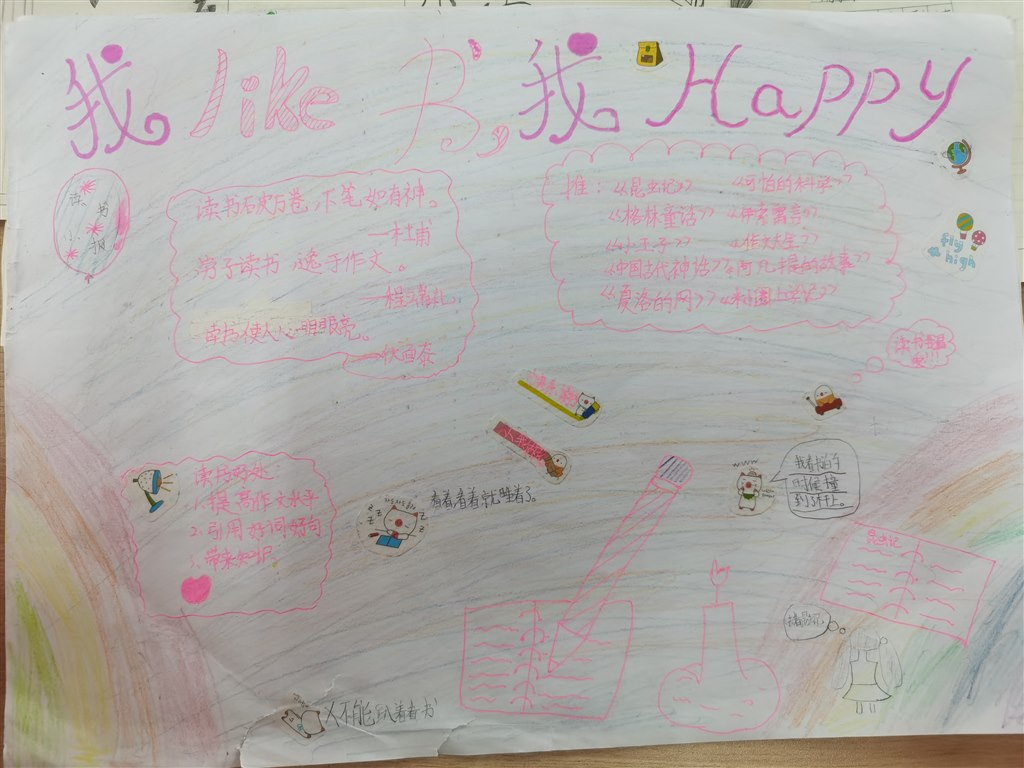 我 like 书, 我 Happy
读书
报
读书破万卷,下笔如有神。
—杜甫
劳于读书,逸于作文。
—程端礼
读书使人心明眼亮。
推:《昆虫记》 《可怕的科学》
《格林童话》 《伊索寓言》
《小王子》 《作文大王》
《中国古代神话》《阿凡提的故事》
《夏洛的网》《木偶上学记》
fly
high
读书
读书好处
1.提高作文水平
2.引用好词好句
3.带来知识
z z z
看着看着就睡着了。
我看书的
时候撞
到了
昆虫记
不能趴着看书